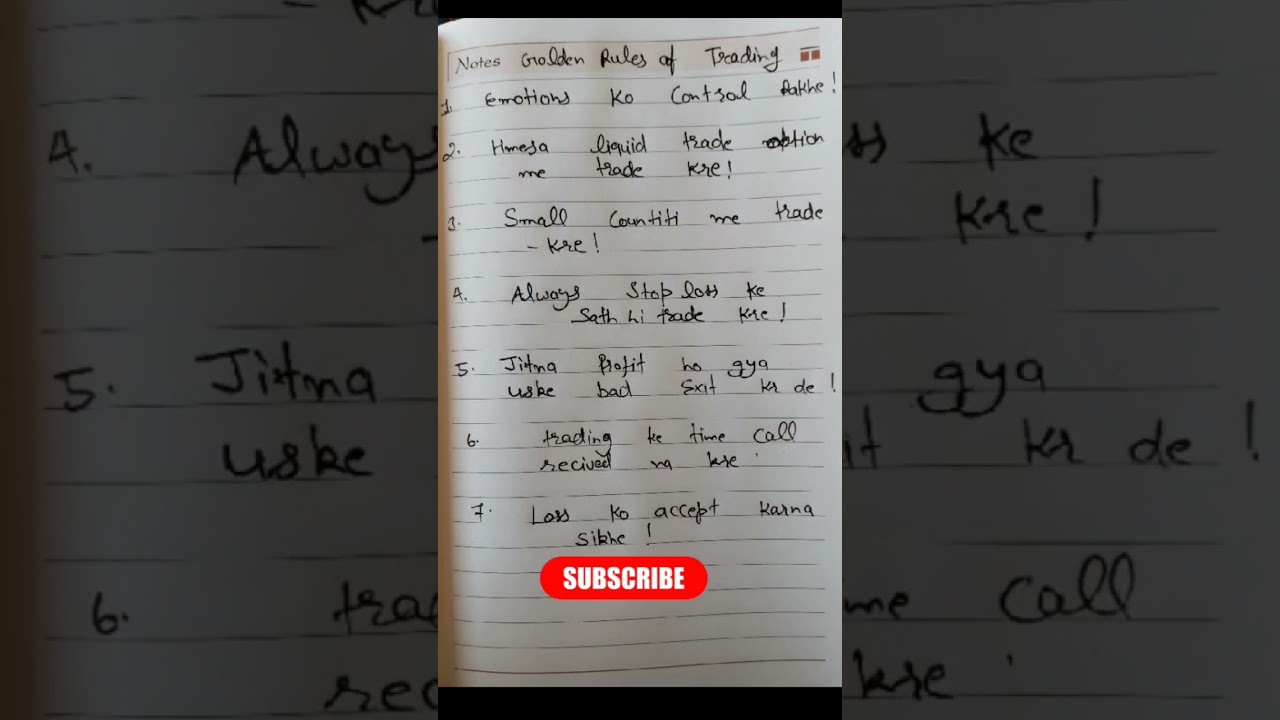 Notes Golden Rules of Trading
1. Emotions Ko Control Rakhe!
2. Hmesa liquid trade option
me trade kre!
3. Small Countiti me trade
- Kre!
4. Always Stop loss ke
Sath hi trade Kre!
5. Jitna Profit ho gya
uske bad Exit Kr de!
6. trading ke time Call
recived na kre
7. Loss Ko accept Karna
Sikhe!
SUBSCRIBE